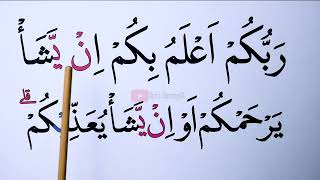 رَبُّكُمْ اَعْلَمُ بِكُمْ اِنْ يَّشَأْ
يَرْحَمْكُمْ اَوْ اِنْ يَّشَأْ يُعَذِّبْكُمْ ؕ قلے